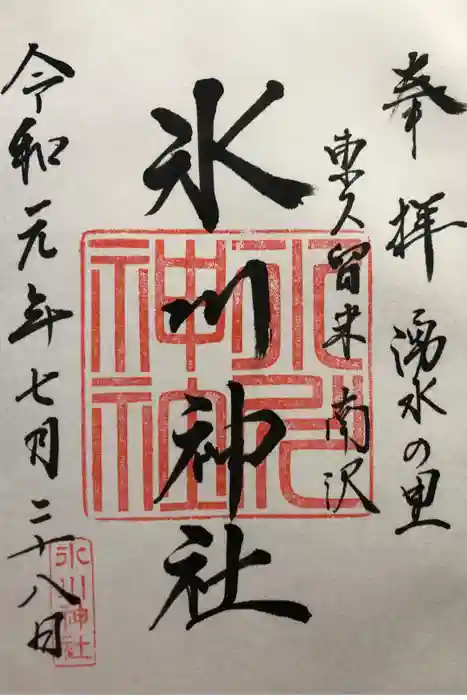 奉拝 湧水の里
東久留米 南沢
氷川神社
令和元年七月二十八日
氷川神社
氷川神社